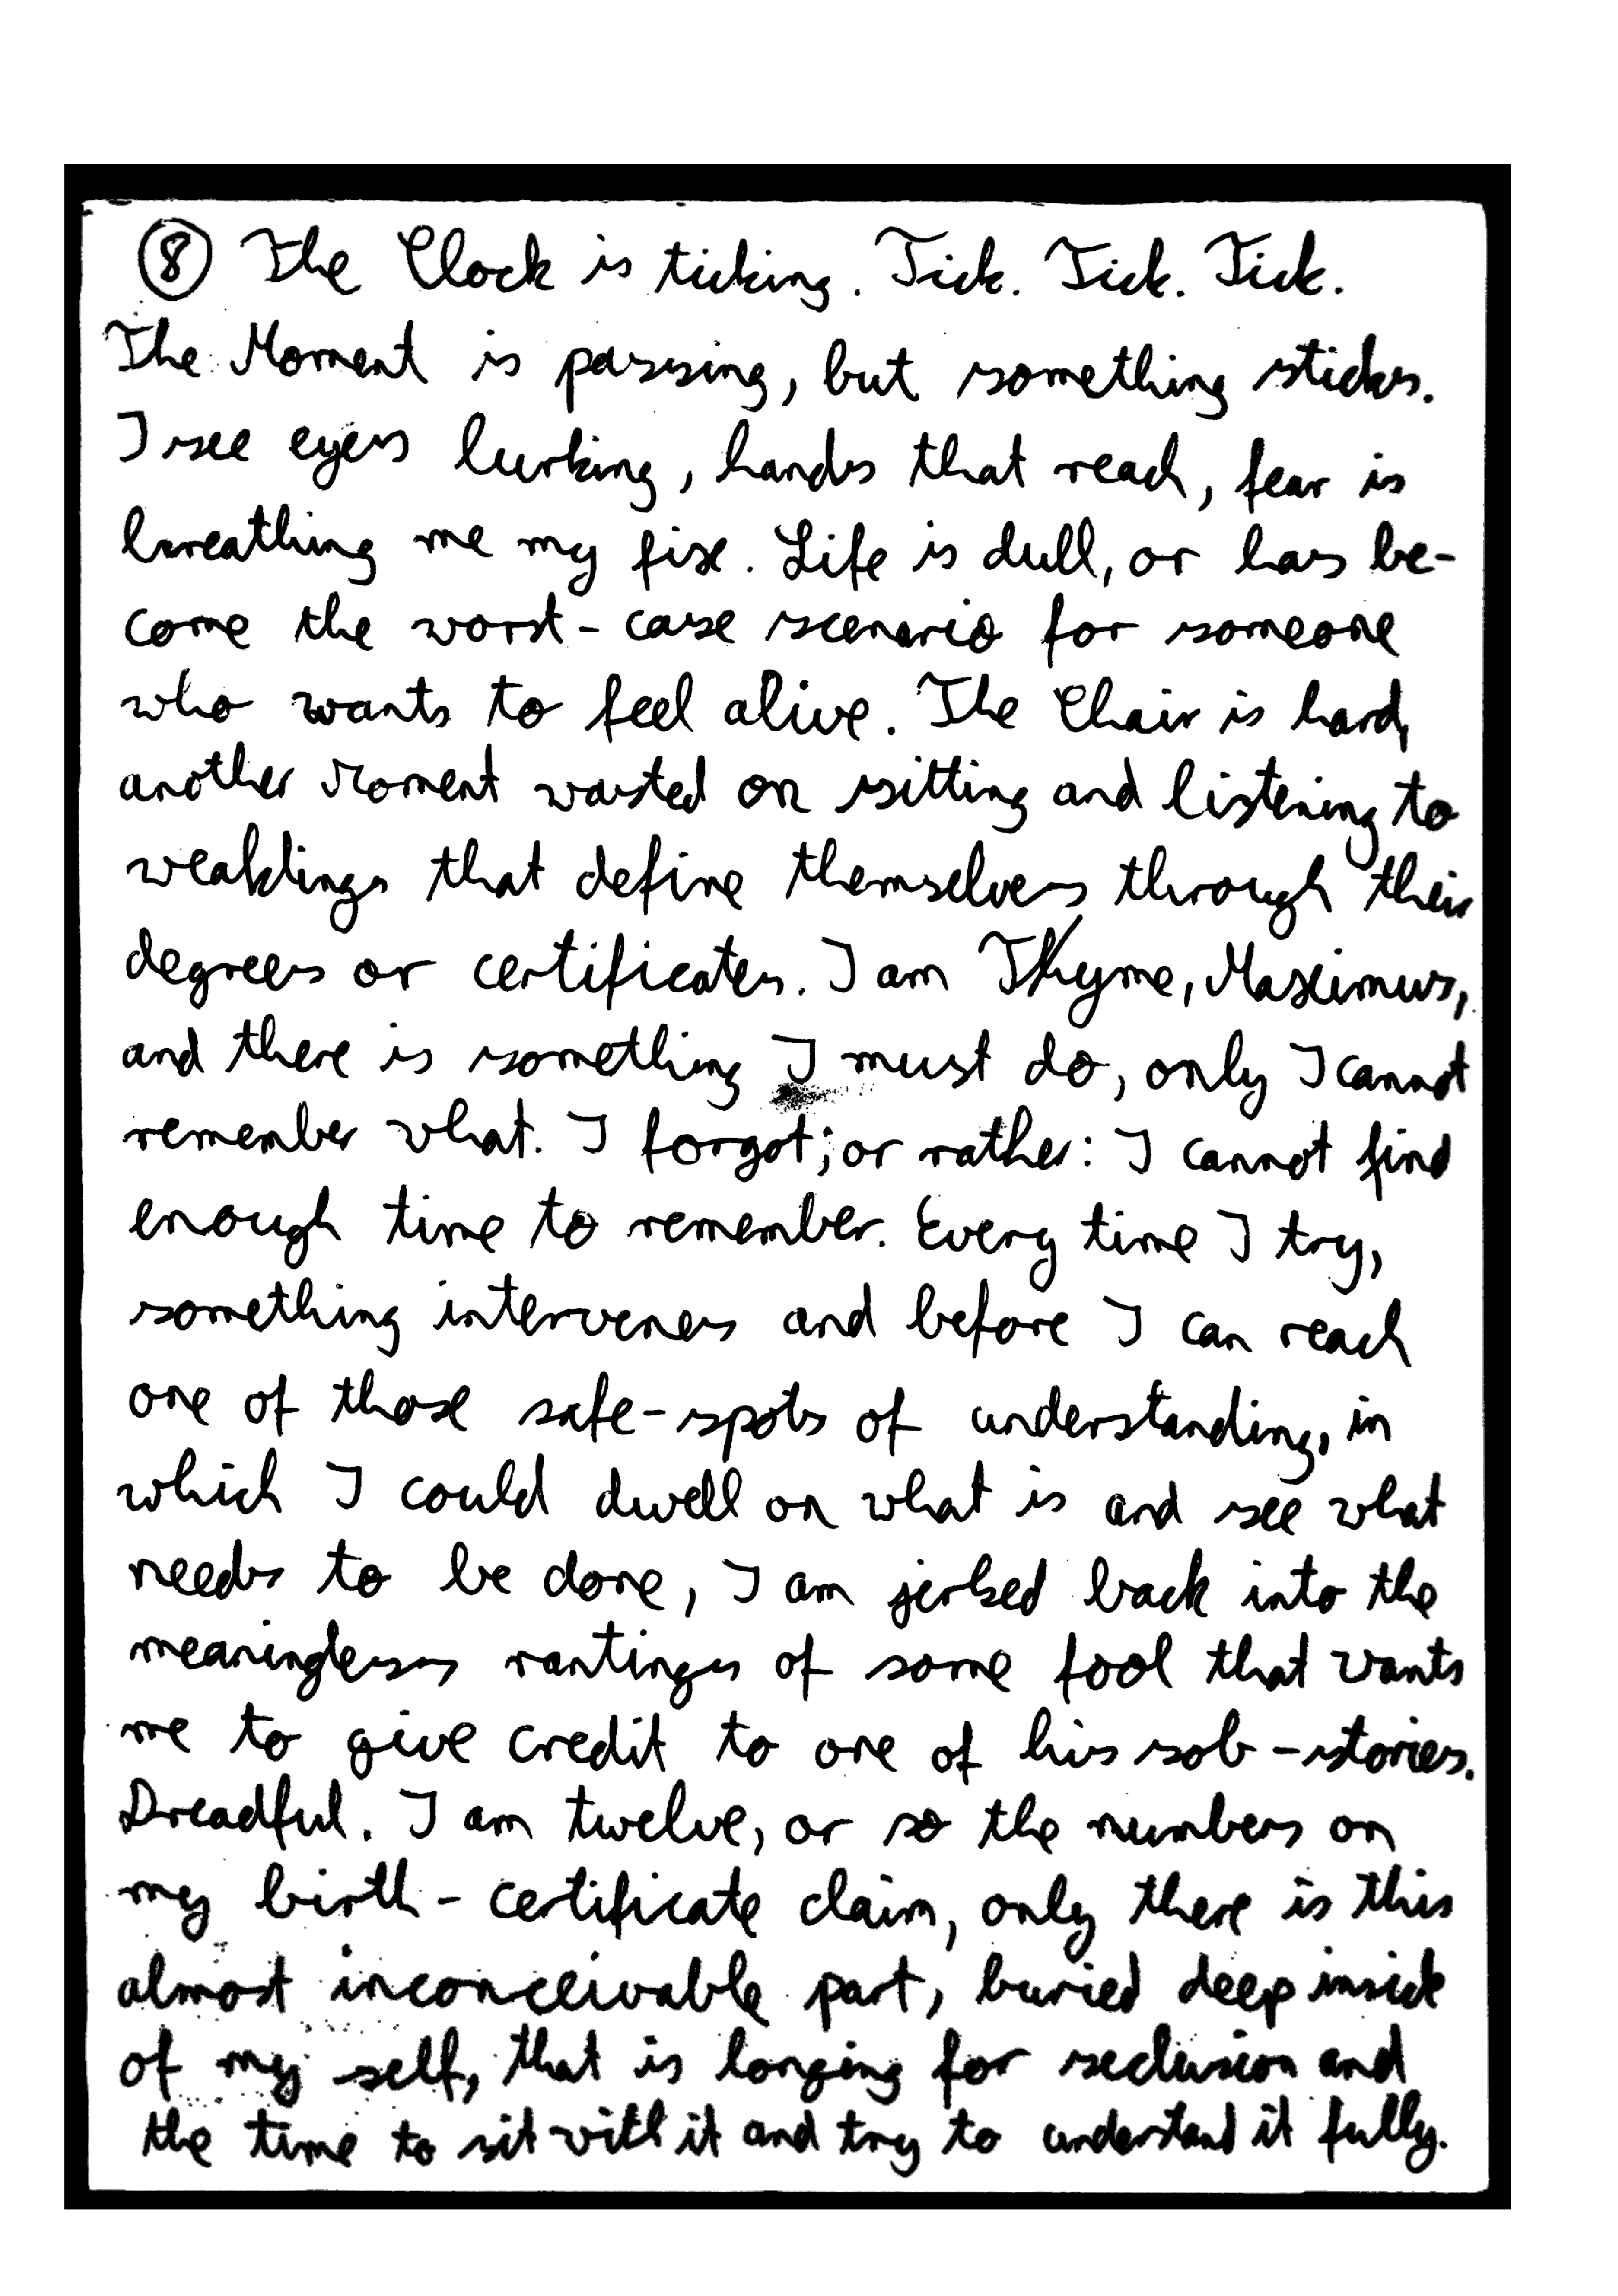 ⑧ The Clock is ticking. Tick. Tick. Tick.
The Moment is passing, but something sticks.
I see eyes lurking, hands that reach, fear is
breathing me my fix. Life is dull, or has be-
come the worst-case scenario for someone
who wants to feel alive. The Chair is hard,
another Moment wasted on sitting and listening to
weaklings that define themselves through their
degrees or certificates. I am Thyme, Maximus,
and there is something I must do, only I cannot
remember what. I forgot; or rather: I cannot find
enough time to remember. Every time I try,
something intervenes and before I can reach
one of those safe-spots of understanding, in
which I could dwell on what is and see what
needs to be done, I am jerked back into the
meaningless rantings of some fool that wants
me to give credit to one of his sob-stories.
Dreadful. I am twelve, or so the numbers on
my birth-certificate claim, only there is this
almost inconceivable part, buried deep inside
of my self, that is longing for seclusion and
the time to sit with it and try to understand it fully.